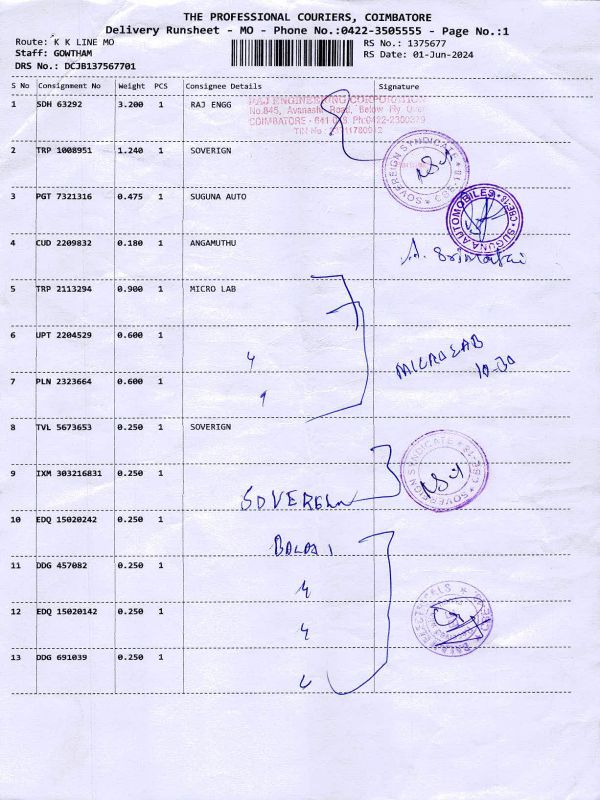 THE PROFESSIONAL COURIERS, COIMBATORE
Delivery Runsheet - MO - Phone No.:0422-3505555 - Page No.:1
Route: K K LINE MO
RS No.: 1375677
Staff: GOWTHAM
RS Date: 01-Jun-2024
DRS No.: DCJB137567701
S No Consignment No Weight PCS Consignee Details Signature
1 SDH 63292 3.200 1 RAJ ENGG
RAJ ENGINEERING CORPORATION
No.845, Avanashi Road, Below Fly Over
COIMBATORE - 641 018 Ph:0422-2300379
2 TRP 1008951 1.240 1 SOVERIGN
SOVEREIGN SYNDICATE * CBE-18 *
3 PGT 7321316 0.475 1 SUGUNA AUTO
SUGUNA AUTOMOBILES * CBE-18 *
4 CUD 2209832 0.180 1 ANGAMUTHU
5 TRP 2113294 0.900 1 MICRO LAB
6 UPT 2204529 0.600 1
MICROLAB
10-30
7 PLN 2323664 0.600 1
8 TVL 5673653 0.250 1 SOVERIGN
SOVEREIGN SYNDICATE * CBE-18 *
9 IXM 303216831 0.250 1
SOVEREGN
10 EDQ 15020242 0.250 1
BALAJI
11 DDG 457082 0.250 1
12 EDQ 15020142 0.250 1
13 DDG 691039 0.250 1